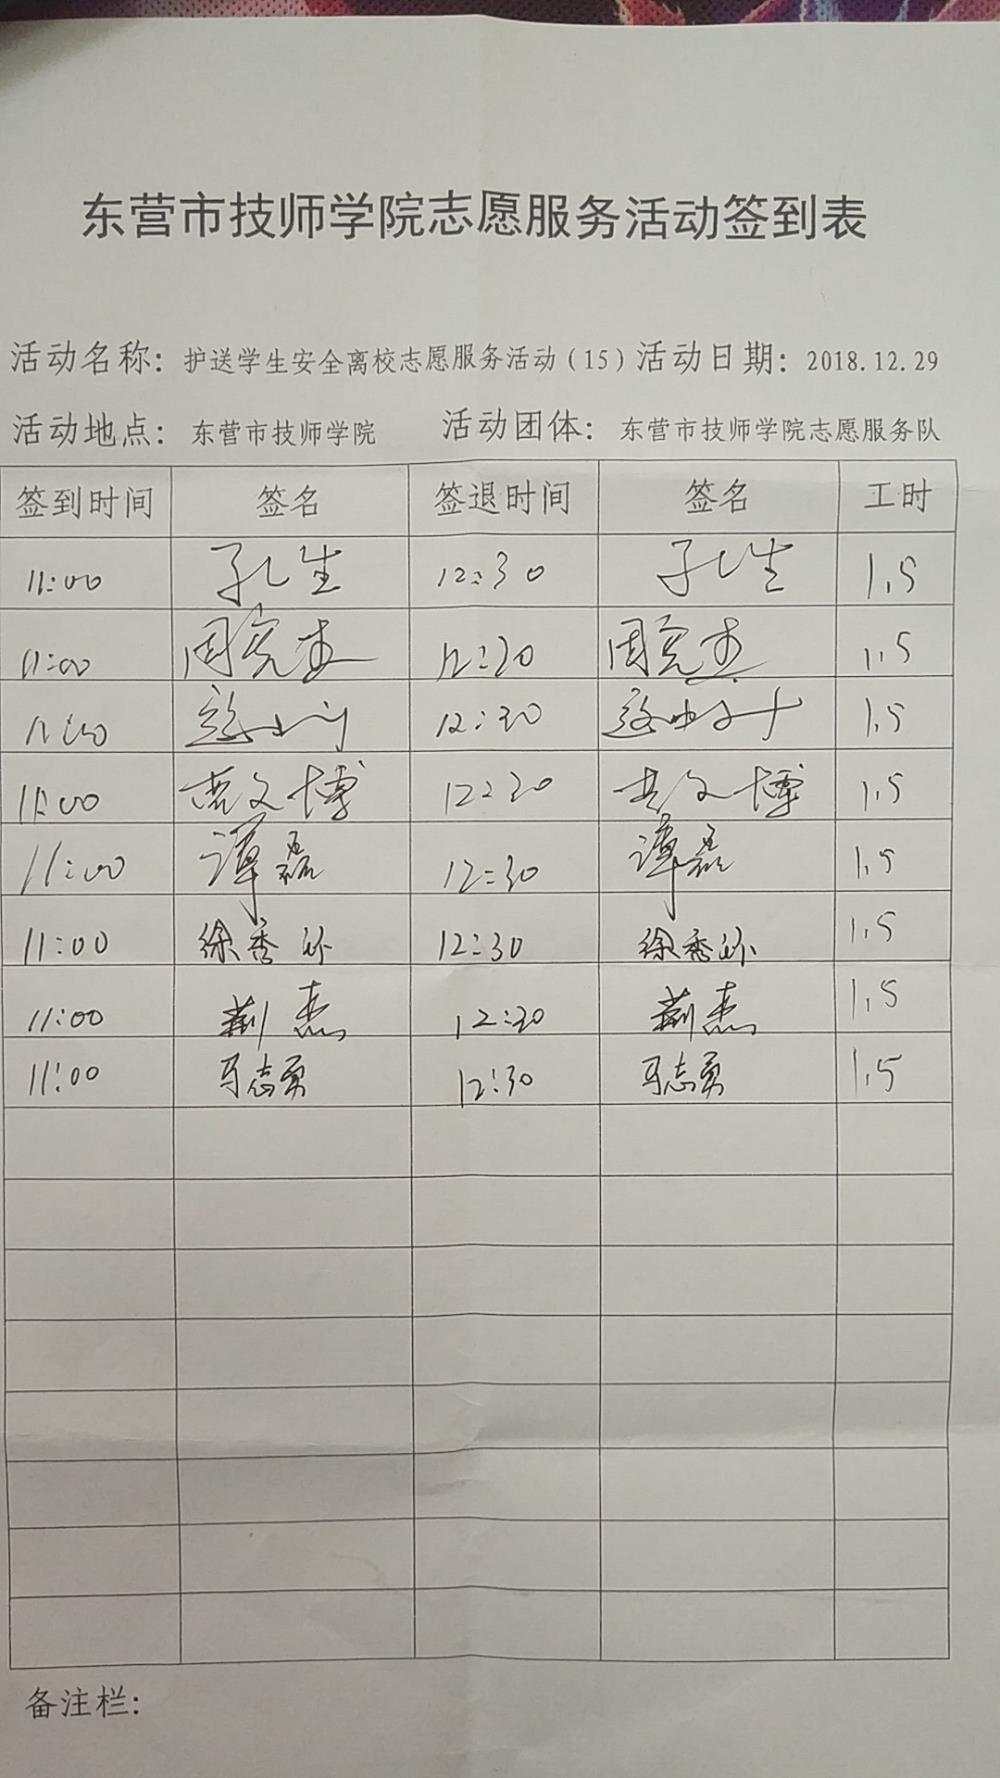 东营市技师学院志愿服务活动签到表
活动名称：护送学生安全离校志愿服务活动（15）活动日期：2018.12.29
活动地点：东营市技师学院 活动团体：东营市技师学院志愿服务队
签到时间 签名 签退时间 签名 工时
11:00 孔生 12:30 孔生 1.5
11:00 周克杰 12:30 周克杰 1.5
11:00 12:30 1.5
11:00 文博 12:30 文博 1.5
11:00 谭磊 12:30 谭磊 1.5
11:00 徐秀 12:30 徐秀 1.5
11:00 荆杰 12:30 荆杰 1.5
11:00 马志勇 12:30 马志勇 1.5
备注栏：